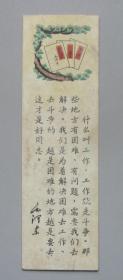 什么叫工作，工作就是斗争。那
些地方有困难、有问题，需要我们去
解决。我们是为着解决困难去工作、
去斗争的。越是困难的地方越是要去，
这才是好同志。
毛泽东